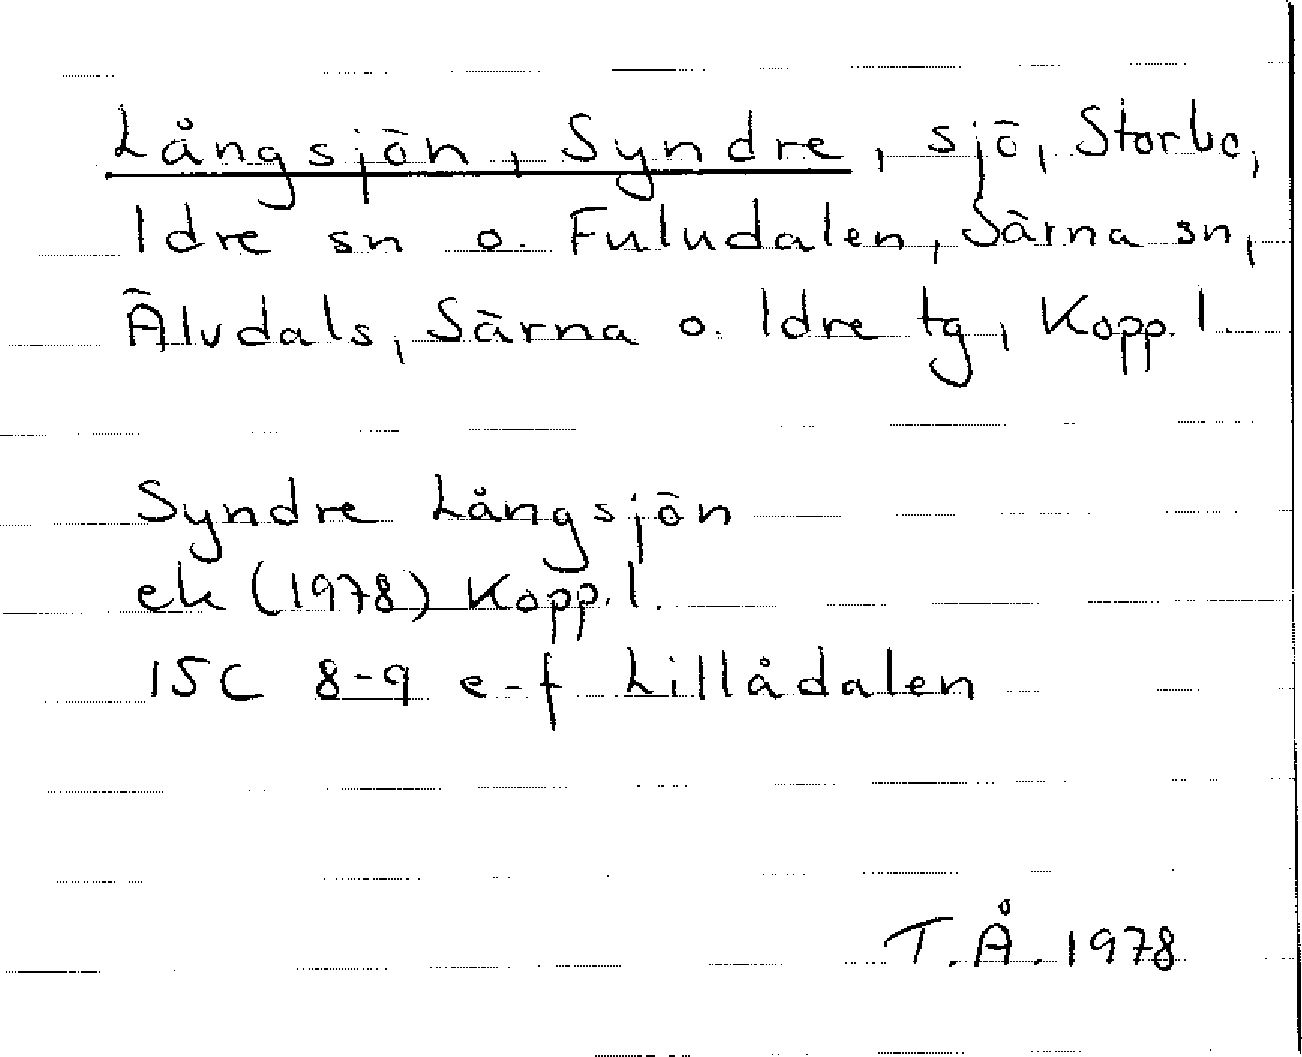 Långsjön, Syndre, sjö, Storbo,
Idre sn o. Fuludalen, Särna sn,
Älvdals, Särna o. Idre tg, Kopp. l.
Syndre Långsjön
ek (1978) Kopp. l.
15C 8-9 e-f Lillådalen
T.Å. 1978